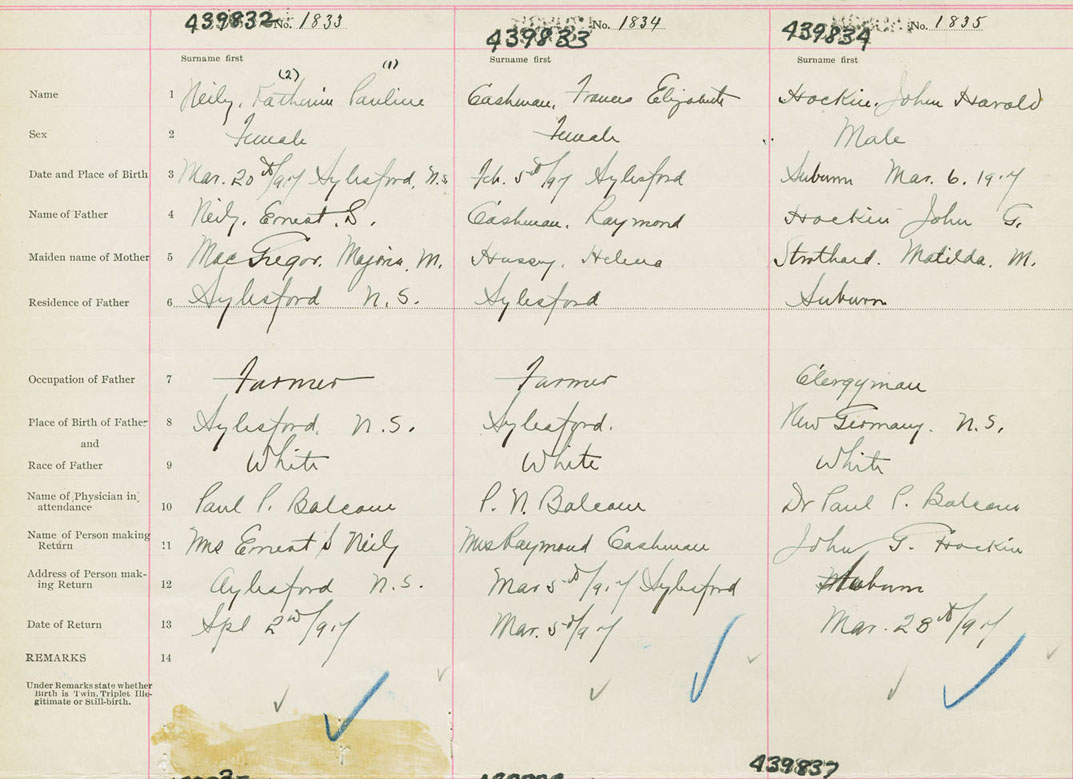 439832 No. 1833 439833 No. 1834 439834 No. 1835
Surname first Surname first Surname first
(2) (1)
Name 1 Neily, Katherine Pauline Cashman, Frances Elizabeth Hockin, John Harold
Sex 2 Female Female Male
Date and Place of Birth 3 Mar. 20th/917 Aylesford, N.S. Feb. 5th/917 Aylesford Auburn Mar. 6. 1917
Name of Father 4 Neily, Ernest S. Cashman, Raymond Hockin John G.
Maiden name of Mother 5 MacGregor, Majorie, M. Hussey, Helena Strothard, Matilda, M.
Residence of Father 6 Aylesford N.S. Aylesford Auburn
Occupation of Father 7 Farmer Farmer Clergyman
Place of Birth of Father 8 Aylesford, N.S. Aylesford. New Germany, N.S.
and
Race of Father 9 White White White
Name of Physician in
attendance 10 Paul P. Balcom P. N. Balcom Dr Paul P. Balcom
Name of Person making
Return 11 Mrs Ernest S Neily Mrs Raymond Cashman John G. Hockin
Address of Person mak-
ing Return 12 Aylesford N.S. Mar 5th/917 Aylesford Auburn
Date of Return 13 Apl 2nd/917 Mar. 5th/917 Mar. 28th/917
REMARKS 14
Under Remarks state whether
Birth is Twin, Triplet Ille-
gitimate or Still-birth.
439837